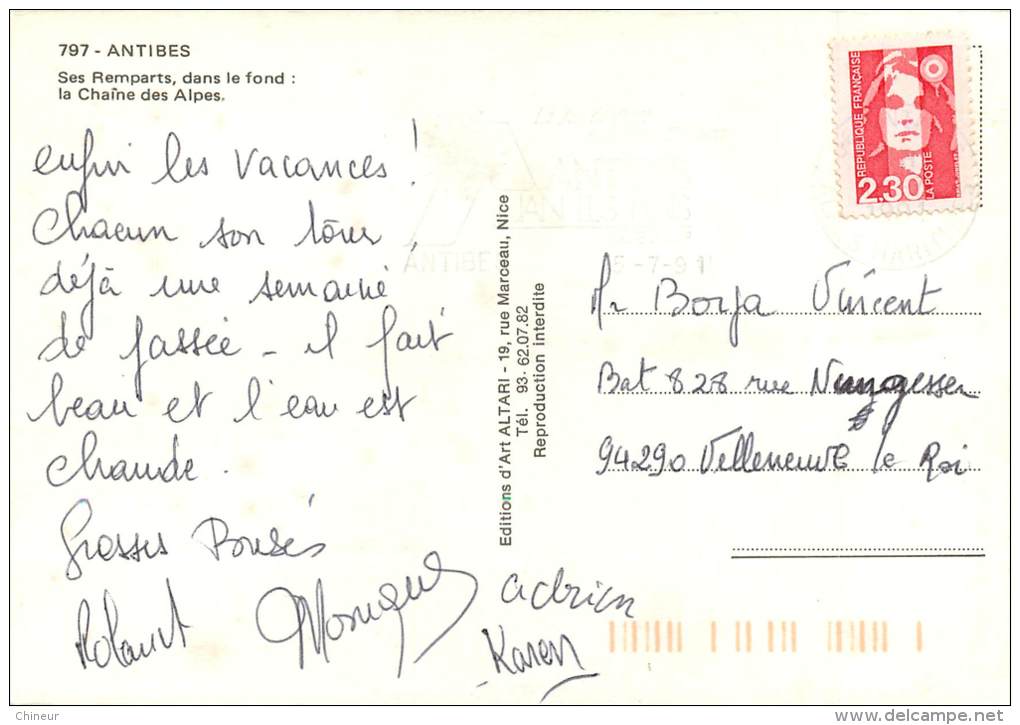 797 - ANTIBES
Ses Remparts, dans le fond :
la Chaîne des Alpes.
enfin les vacances !
Chacun son tour,
déjà une semaine
de passée - il fait
beau et l'eau est
chaude.
Grosses Bousés
Roland Monique adrien
Karen
Editions d'Art ALTARI - 19, rue Marceau, Nice
Tél. 93. 62.07.82
Reproduction interdite
RÉPUBLIQUE FRANÇAISE
2,30
LA POSTE
ANTIBE
5-7-91
Mr Borja Vincent
Bat 828 rue Nungesser
94290 Villeneuve le Roi
Chineur
www.delcampe.net